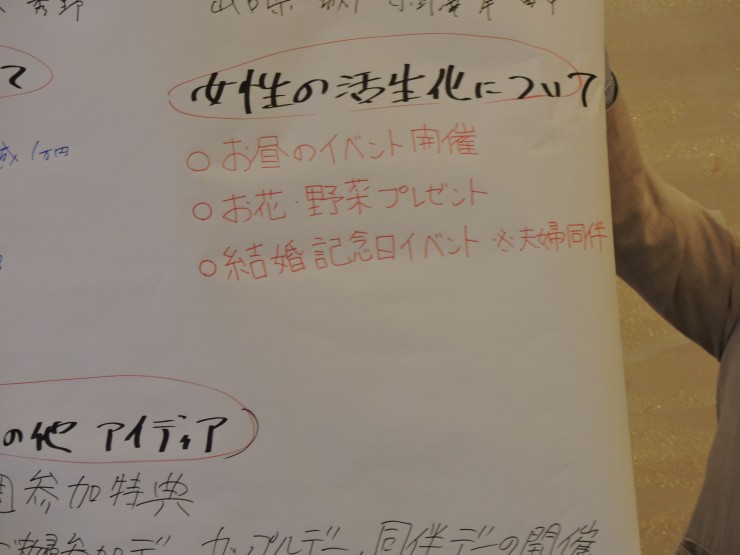 て
女性の活生化について
〇 お昼のイベント開催
1万円
〇 お花・野菜プレゼント
〇 結婚記念日イベント ※夫婦同伴
の他 アイディア
参加特典
カップルデー、同伴デーの開催